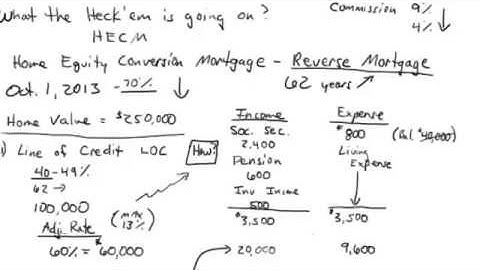 What the Heck'em is going on?
HECM
Commission 9%
4% ↓
Home Equity Conversion Mortgage - Reverse Mortgage
Oct. 1, 2013 -70% ↓
62 years
Home Value = $250,000
1) Line of Credit LOC
How?
40-49%
62 →
100,000
Adj. Rate
(max 13%)
60% = $60,000
Income
Soc. Sec.
2,400
Pension
600
Inv Income
500
$3,500
20,000
Expense
$800 (Bal $40,000)
Living Expense
$3,500
9,600